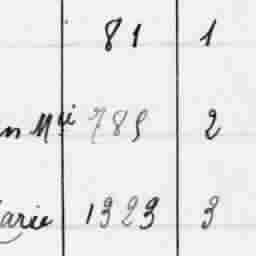 81 1
n Mie 785 2
arie 1323 3